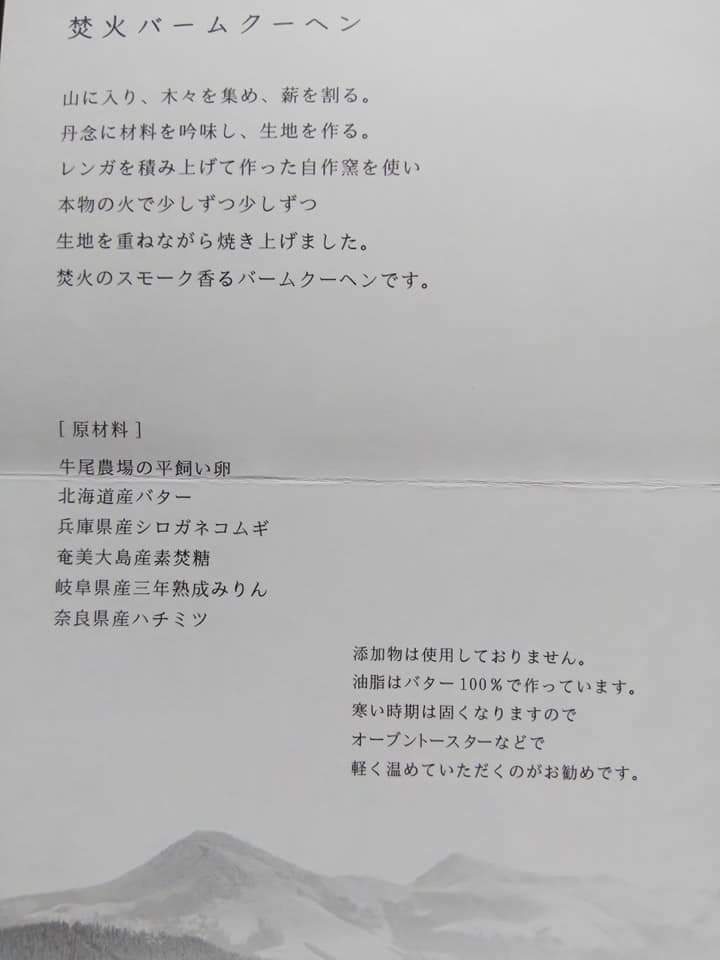 焚火バームクーヘン
山に入り、木々を集め、薪を割る。
丹念に材料を吟味し、生地を作る。
レンガを積み上げて作った自作窯を使い
本物の火で少しずつ少しずつ
生地を重ねながら焼き上げました。
焚火のスモーク香るバームクーヘンです。
[ 原材料 ]
牛尾農場の平飼い卵
北海道産バター
兵庫県産シロガネコムギ
奄美大島産素焚糖
岐阜県産三年熟成みりん
奈良県産ハチミツ
添加物は使用しておりません。
油脂はバター100%で作っています。
寒い時期は固くなりますので
オーブントースターなどで
軽く温めていただくのがお勧めです。